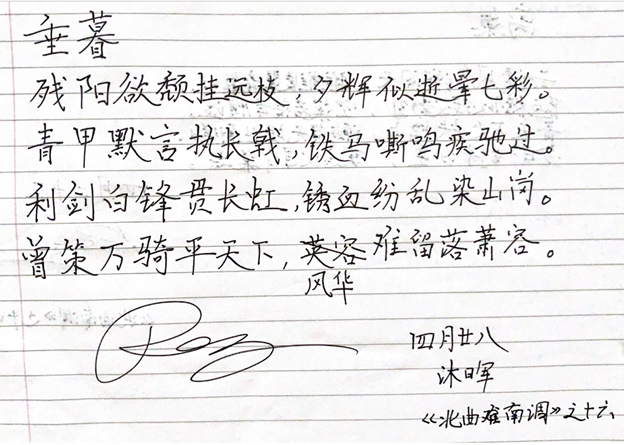 垂暮
残阳欲颓挂远枝，夕辉似逝晕七彩。
青甲默言执长戟，铁马嘶鸣疾驰过。
利剑白锋贯长虹，锈血纷乱染山岗。
曾策万骑平天下，英容难留落萧容。
风华
四月廿八
沐晖
《北曲难南调》之十六